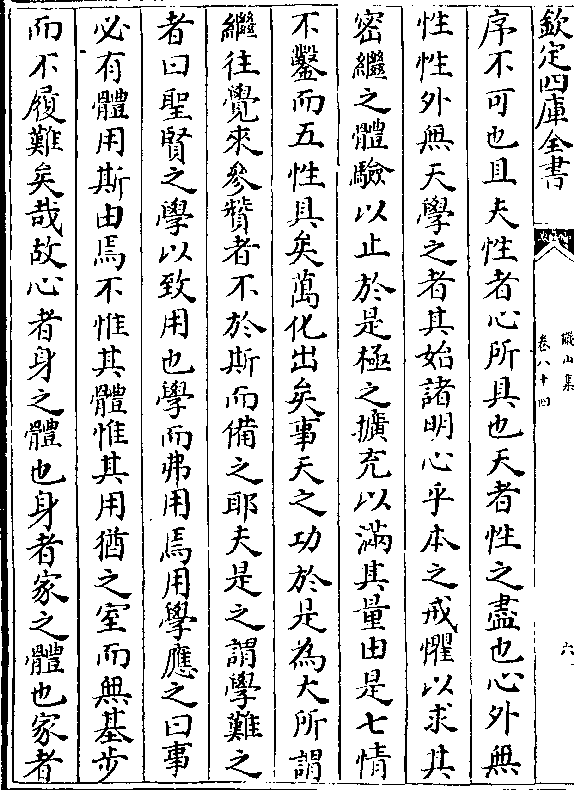 欽定四庫全書
儼山集
卷八十四
六
序不可也且夫性者心所具也天者性之盡也心外無
性性外無天學之者其始諸明心乎本之戒懼以求其
密繼之體驗以止於是極之擴充以滿其量由是七情
不鑿而五性具矣萬化出矣事天之功於是為大所謂
繼往覺來參贊者不於斯而備之耶夫是之謂學難之
者曰聖賢之學以致用也學而弗用焉用學應之曰事
必有體用斯由焉不惟其體惟其用猶之室而無基步
而不履難矣哉故心者身之體也身者家之體也家者